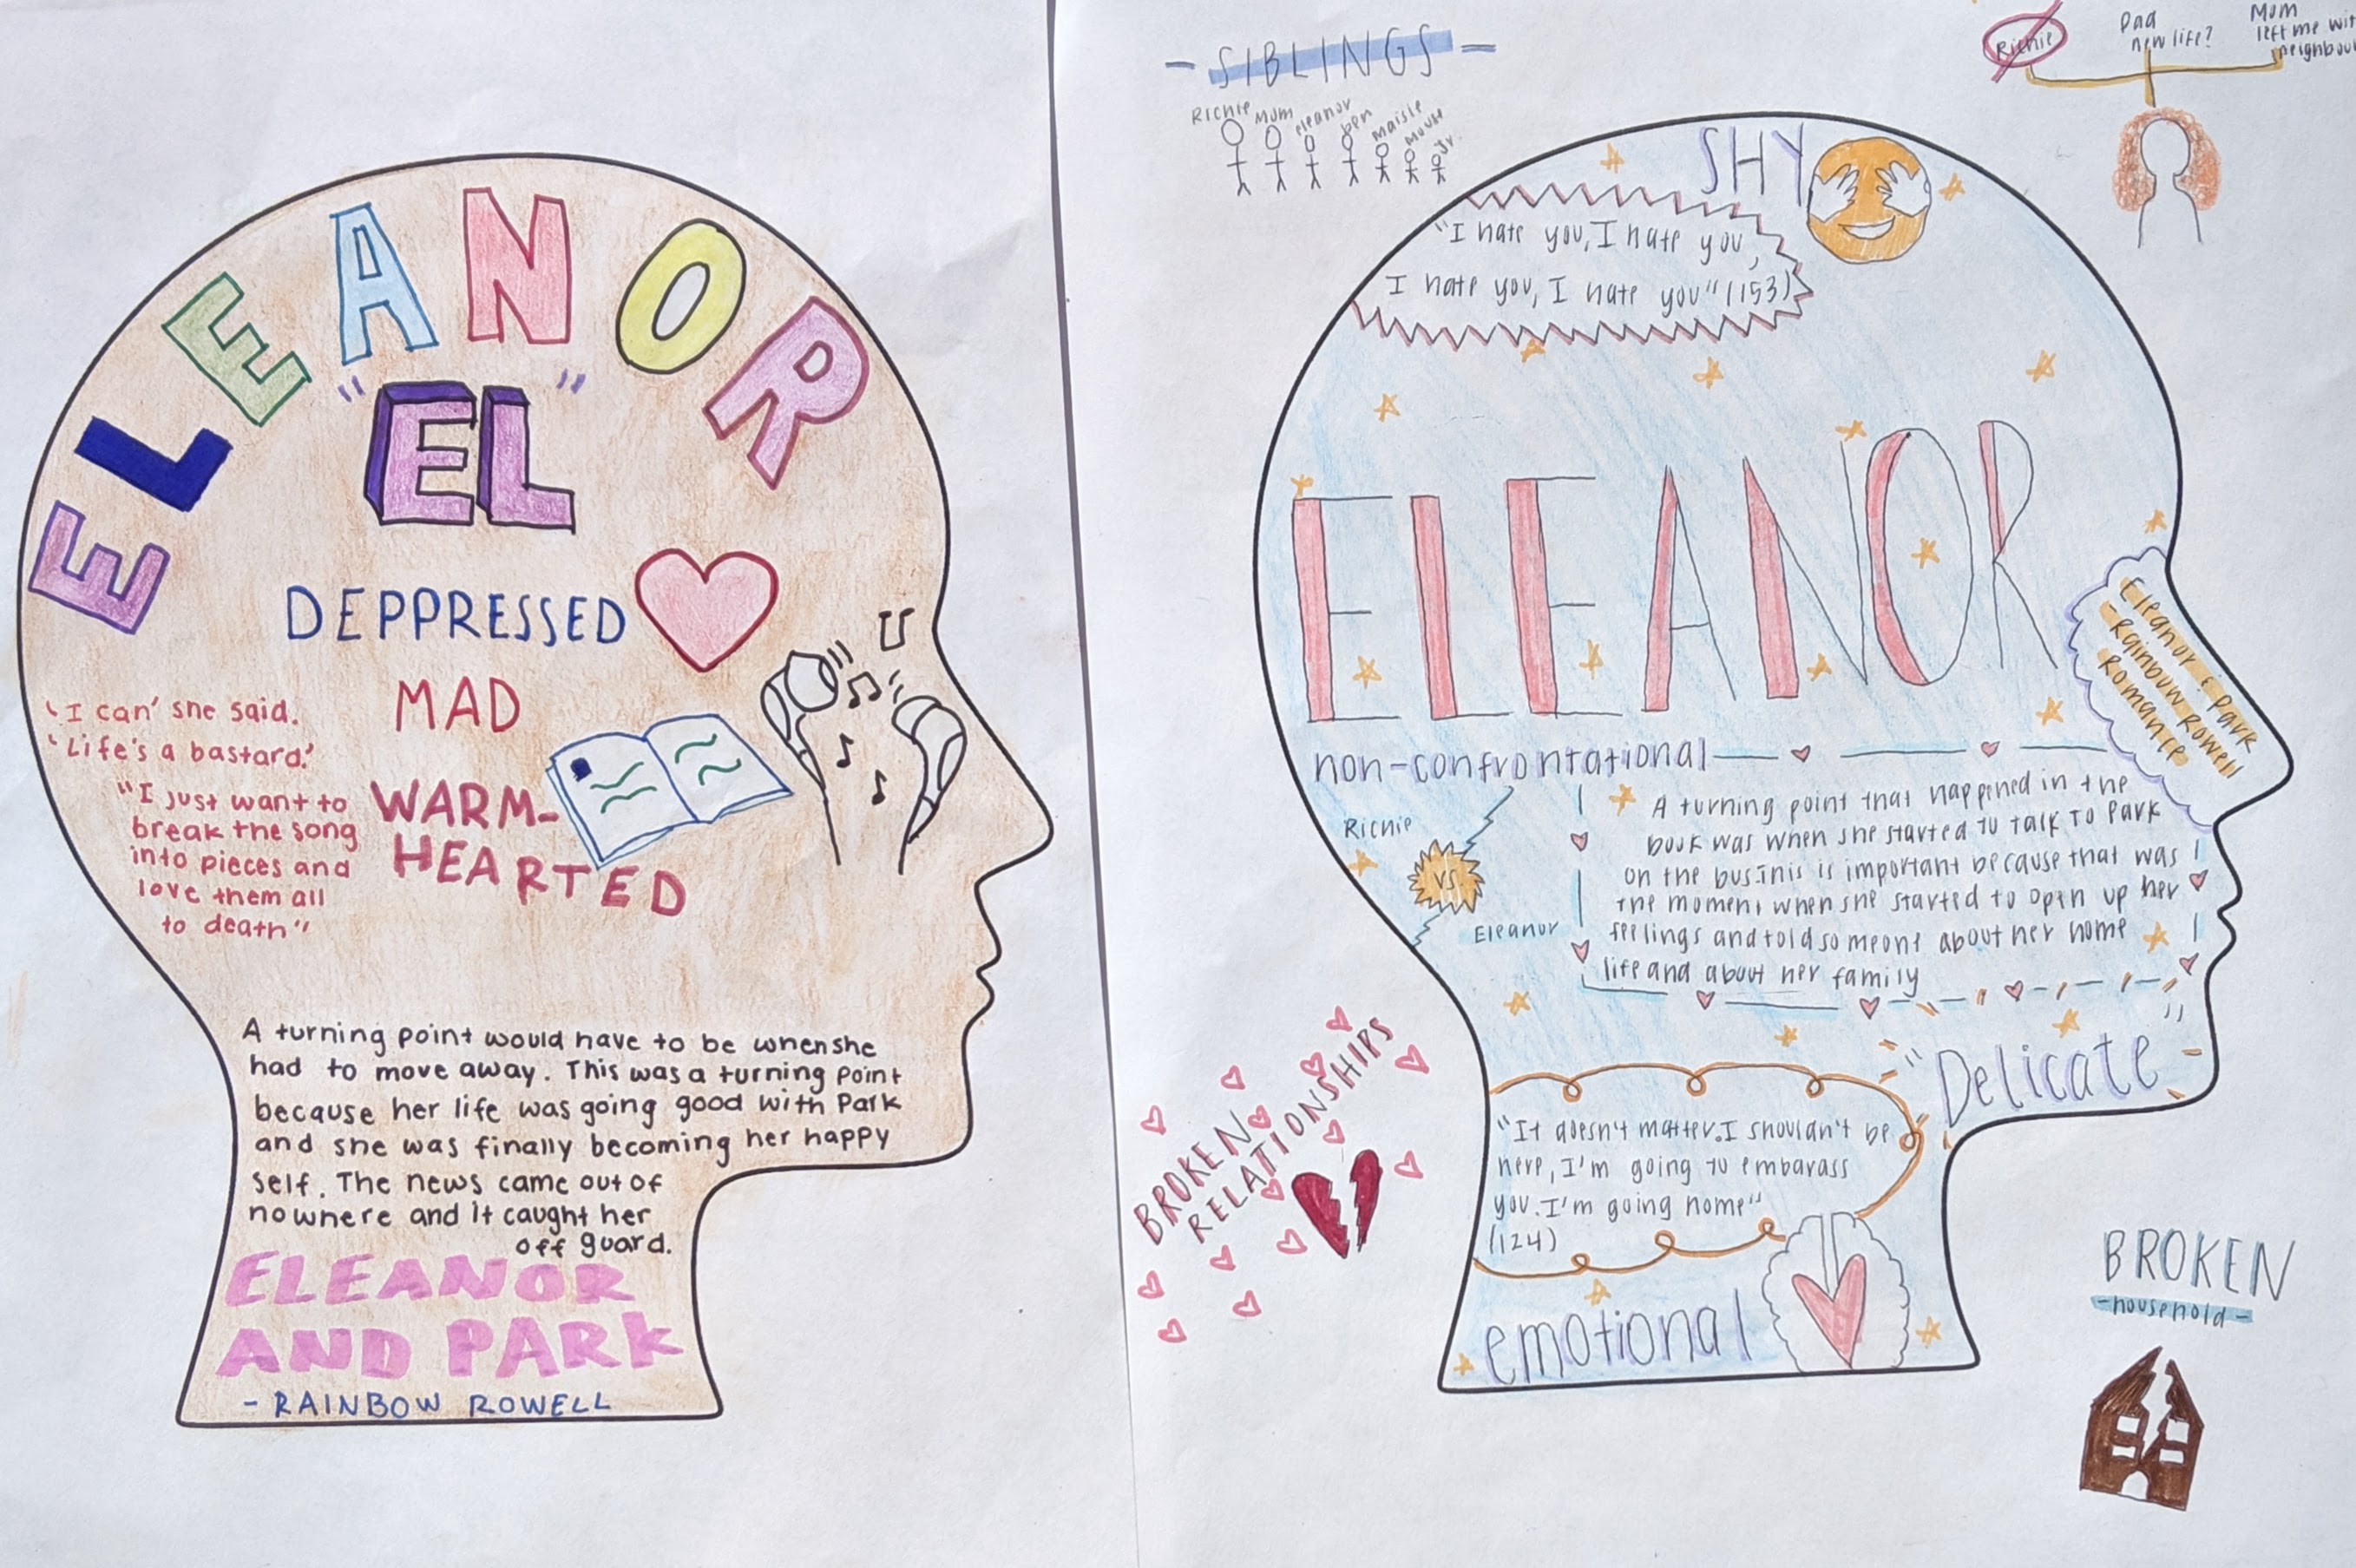 ELEANOR
"EL"
DEPPRESSED
MAD
WARM-
HEARTED
'I can' she said.
'Life's a bastard.'
"I just want to
break the song
into pieces and
love them all
to death"
A turning point would have to be when she
had to move away. This was a turning point
because her life was going good with Park
and she was finally becoming her happy
self. The news came out of
nowhere and it caught her
off guard.
ELEANOR
AND PARK
- RAINBOW ROWELL
- SIBLINGS -
Richie Mum eleanor ben maisie mouse Jr.
Richie
Dad
new life?
Mum
left me wit
neighbou
SHY
"I hate you, I hate you,
I hate you, I hate you" (153)
ELEANOR
Eleanor & Park
- Rainbow Rowell
Romance
non-confrontational
Richie
vs
Eleanor
A turning point that happened in the
book was when she started to talk to Park
on the bus. This is important because that was
the moment when she started to open up her
feelings and told someone about her home
life and about her family
"Delicate"
"It doesn't matter. I shouldn't be
here, I'm going to embarass
you. I'm going home"
(124)
emotional
BROKEN
RELATIONSHIPS
BROKEN
- household -